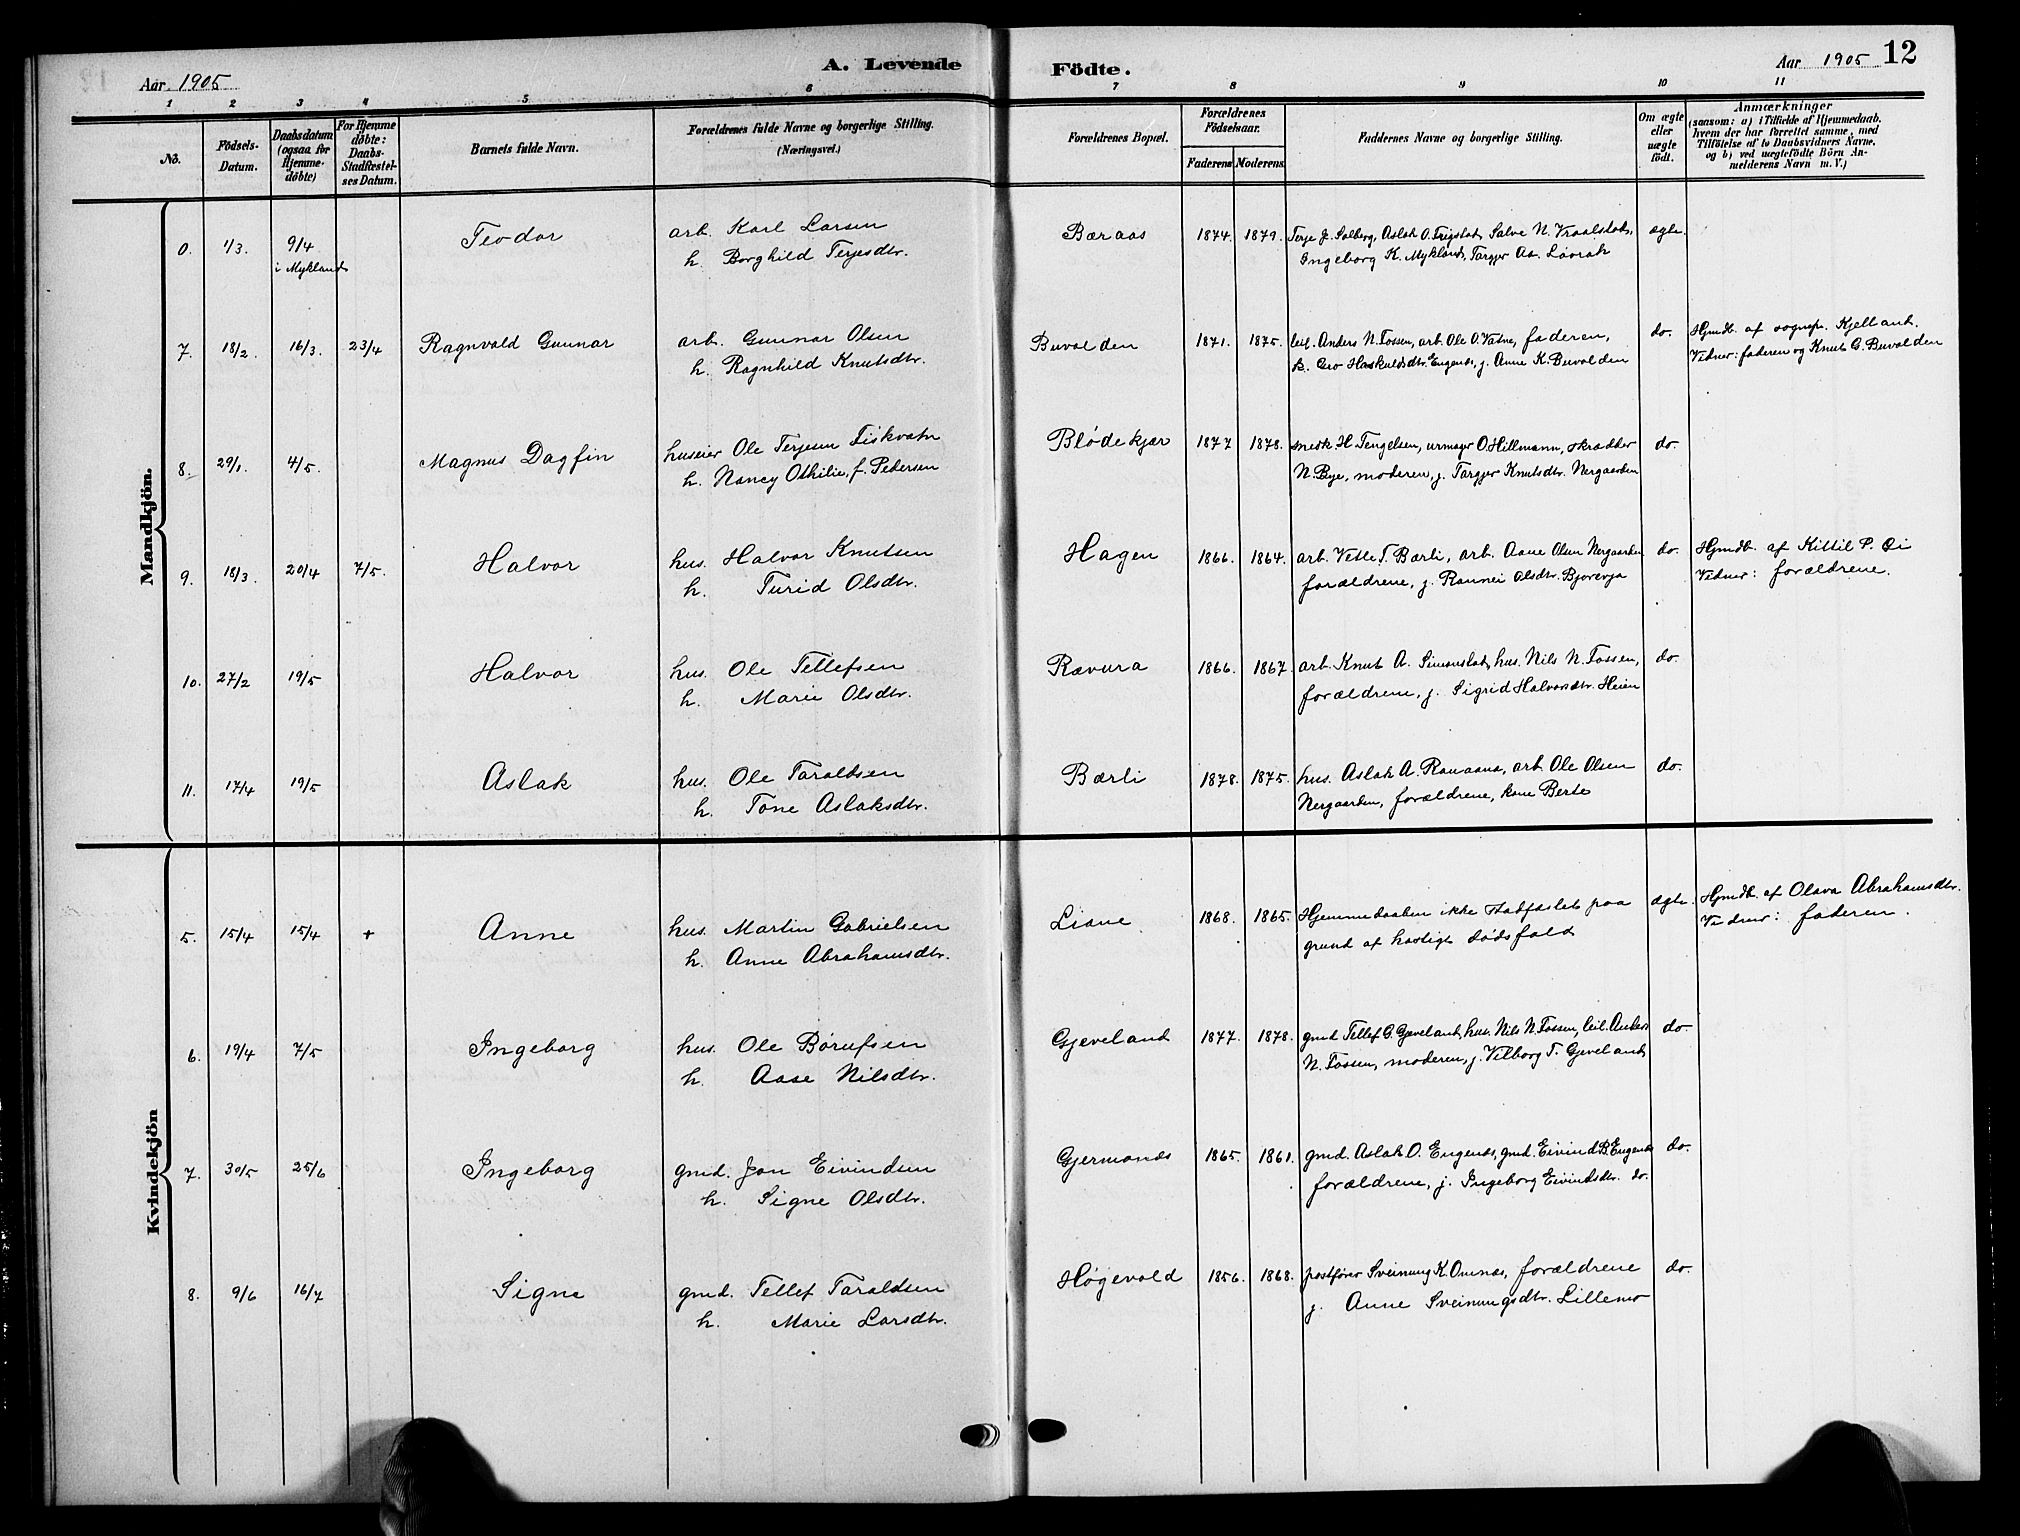 Aar 1905
A. Levende
Födte.
Aar 1905
12
1 2 3 4 5 6 7 8 9 10 11
No.
Födsels-Datum.
Daabsdatum (ogsaa for Hjemmedöbte)
For Hjemmedöbte: Daabs-Stadfæstelses Datum.
Barnets fulde Navn.
Forældrenes fulde Navne og borgerlige Stilling. (Næringsvei.)
Forældrenes Bopæl.
Forældrenes Födselsaar.
Faderens Moderens
Faddernes Navne og borgerlige Stilling.
Om ægte eller uægte födt.
Anmærkninger
(saasom: a) i Tilfælde af Hjemmedaab,
hvem der har forrettet samme, med
Tilföielse af to Daabsvidners Navne,
og b) ved uægtefödte Börn An-
melderens Navn m. V.)
Mandkjön.
0. 1/3. 9/4 Teodor arb. Karl Larsen Bæraas 1874. 1879. Terje J. Solberg, Aslak O. Trigstad, Salve N. Vraalstad, ægte.
i Mykland h. Borghild Terjesdtr. Ingeborg K. Mykland, Targjer Aa. Løvrak
7. 18/2. 16/3. 23/4 Ragnvald Gunnar arb. Gunnar Olsen Buvolden 1871. 1875. leil. Anders N. Fossen, arb. Ole O. Vatne, faderen, do. Hjmdb. af sognepr. Kjelland.
h. Ragnhild Knutsdtr. k. Gro Haskuldsdtr. Engenes, j. Anne K. Buvolden Vidner: faderen og Knut G. Buvolden
8. 29/1. 4/5. Magnus Dagfin huseier Ole Terjesen Fiskvatn Blødekjær 1877 1878. snedk. H. Tengelsen, urmager O. Hillmann, skrædder do.
h. Nancy Othilie, f. Pedersen N. Bye, moderen, j. Targjer Knutsdtr. Nergaarden
9. 18/3. 20/4 7/5. Halvor hus. Halvor Knutsen Hagen 1866. 1864. arb. Vetle T. Bærli, arb. Aane Olsen Nergaarden do. Hjmdb. af Kittil P. Li
h. Turid Olsdtr. forældrene, j. Rannei Olsdtr. Bjorevja Vidner: forældrene.
10. 27/2 19/5 Halvor hus. Ole Tellefsen Rævura 1866. 1867. arb. Knut A. Simonstad, hus. Nils N. Fossen, do.
h. Marie Olsdtr. forældrene, j. Sigrid Halvorsdtr. Heien
11. 17/4 19/5 Aslak hus. Ole Taraldsen Bærli 1878. 1875. hus. Aslak A. Ramaana, arb. Ole Olsen do.
h. Tone Aslaksdtr. Nergaarden, forældrene, kone Berte
Kvindekjön
5. 15/4 15/4 + Anne hus. Martin Gabrielsen Liane 1868. 1865. Hjemmedaaben ikke stadfæstet paa ægte. Hjmdb. af Olava Abrahamsdtr.
h. Anne Abrahamsdtr. grund af hastigt dødsfald Vidner: faderen.
6. 19/4 7/5 Ingeborg hus. Ole Børufsen Gjeveland 1877. 1878. gmd Tellef G. Gjeveland, hus. Nils N. Fossen, leil. Anders do
h. Aase Nilsdtr. N. Fossen, moderen, j. Vilborg T. Gjeveland
7. 30/5 25/6 Ingeborg gmd. Jon Eivindsen Gjermonds 1865. 1861. gmd. Aslak O. Engenes, gmd. Eivind B. Engenes do.
h. Signe Olsdtr. forældrene, j. Ingeborg Eivindsdtr. do.
8. 9/6 16/7 Signe gmd. Tellef Taraldsen Høgevold 1856. 1868. postfører Sveinung K. Omnæs, forældrene do.
h. Marie Larsdtr. j. Anne Sveinungsdtr. Lillemo